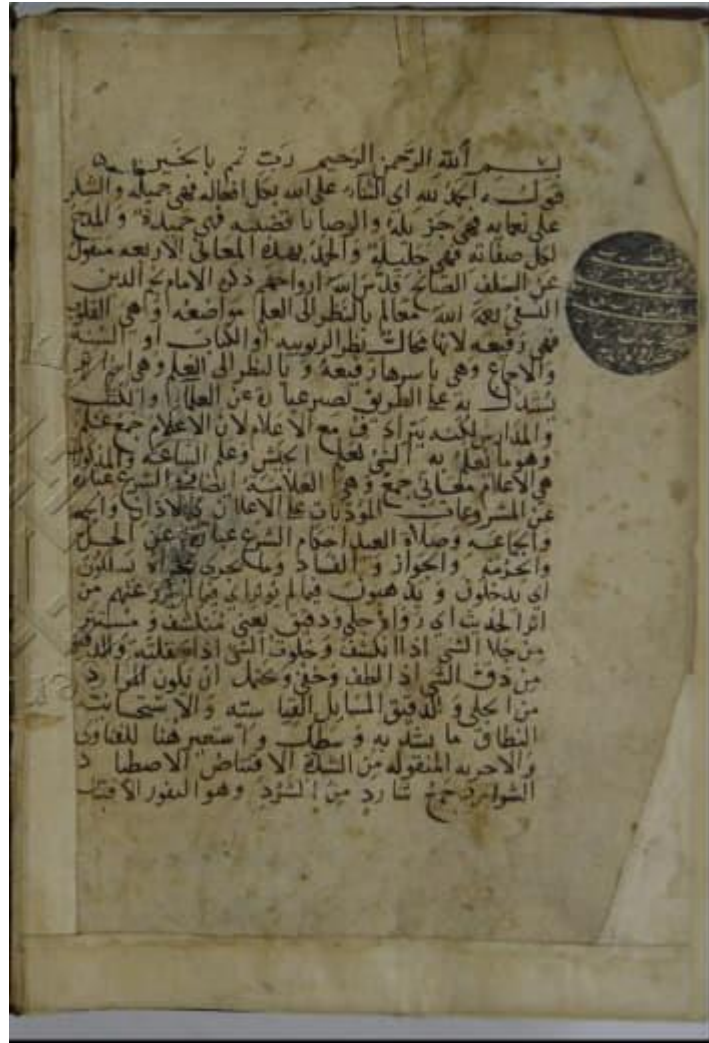 بسم الله الرحمن الرحيم رب تمم بالخير
قوله الحمد لله اي الثناء على الله بكل افعاله فهي جميله والشكر
على نعمايه فهي جزيله والرضا باقضيته فهي حميدة والمدح
لكل صفاته فهي جليلة والحمد بهذه المعاني الاربعه منقول
عن السلف الصالح قدس الله ارواحهم ذكره الامام نجم الدين
النسفي رحمه الله معالم بالنظر الى العلم مواضعه وهي القلوب
فهي رفيعه لانها محال نظر الربوبيه او الكتاب او السنة
والاجماع وهي باسرها رفيعة وبالنظر الى العلم وهي
يستدل به على الطريق تصير عبارة عن العلماء والكتب
والمدارس لكنه يترادف مع الاعلام لان الاعلام جمع علم
وهو ما يعلم به الشي كعلم الجيش وعلم الساعة
هي الاعلام معاني جمع وهي العلامة ايضا الشرع عبارة
عن المشروعات المؤديات على الاعلان كالاذان
والجماعه وصلاة العيد احكام الشرع عبارة عن الحل
والحرمه والجواز والفساد وما يجري مجراه يسلكون
اي يدخلون ويذهبون فيما لم يوثر اي فيما لم يرو عنهم من
اثر الحديث اي رواه جلي ودقيق يعني منكشف ومستتر
من جلا الشي اذا انكشف وجلوت الشي اذا صقلته
من دق الشي اذا لطف وخفي ويحتمل ان يكون المراد
من الجلي والدقيق المسايل القياسيه والاستحسانيه
النطاق ما يشد به وسطك واستعير هنا للفتاوى
والاجوبه المنقوله من الشدة الاقتناص الاصطياد
الشوارد جمع شارد من الشرد وهو النفور